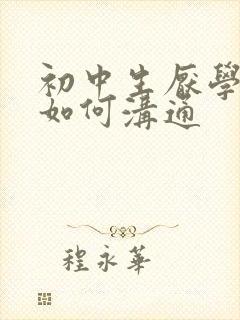 初中生厭學
如何溝通
程永華